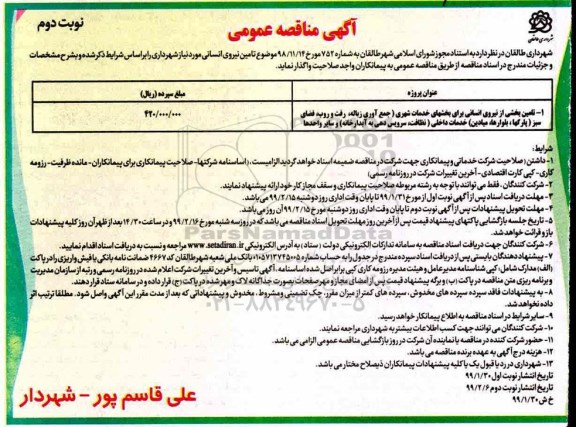 نوبت دوم
آگهی مناقصه عمومی
شهرداری طالقان در نظر دارد به استناد مجوز شورای اسلامی شهر طالقان به شماره ۷۵۲ مورخ ۹۸/۱۱/۱۴ موضوع تامین نیروی انسانی مورد نیاز شهرداری را بر اساس شرایط ذکر شده و بشرح مشخصات
و جزئیات مندرج در اسناد مناقصه از طریق مناقصه عمومی به پیمانکاران واجد صلاحیت واگذار نماید.
عنوان پروژه
مبلغ سپرده (ریال)
۱- تامین بخشی از نیروی انسانی برای بخشهای خدمات شهری ( جمع آوری زباله، رفت و روب، فضای
سبز ( پارکها، بلوارها، میادین) خدمات داخلی ( نظافت، سرویس دهی به آبدارخانه) و سایر واحدها
۴۲۰/۰۰۰/۰۰۰
شرایط:
۱- داشتن رصلاحیت شرکت خدماتی و پیمانکاری جهت شرکت در مناقصه ضمیمه اسناد خواهد گردید الزامیست. (اساسنامه شرکتها- صلاحیت پیمانکاری برای پیمانکاران - مانده ظرفیت - رزومه
کاری- کپی کارت اقتصادی- آخرین تغییرات شرکت در روزنامه رسمی)
۲- شرکت کنندگان، فقط می توانند با توجه به رشته مربوطه صلاحیت پیمانکاری و سقف مجاز کار خود ارائه پیشنهاد نمایند.
۳- مهلت دریافت اسناد پس از آگهی نوبت اول از مورخ ۹۹/۱/۳۱ تا پایان وقت اداری روز دوشنبه ۹۹/۲/۱۵ می باشد.
۴- مهلت تحویل پیشنهادات پس از آگهی نوبت دوم تا پایان وقت اداری روز دوشنبه مورخ ۹۹/۲/۱۵ آن روز می باشد.
۵- تاریخ جلسه بازگشایی پاکتهای پیشنهاد قیمت پس از آخرین روز مهلت تحویل اسناد مناقصه می باشد که در روز سه شنبه مورخ ۹۹/۲/۱۶ و در ساعت ۱۴/۳۰ بعد از ظهر آن روز کلیه پیشنهادات
باز و قرائت خواهد شد.
۶- شرکت کنندگان جهت دریافت اسناد مناقصه به سامانه تدارکات الکترونیکی دولت ( ستاد) به آدرس الکترونیکی www.setadiran.ir مراجعه و نسبت به دریافت اسناد اقدام نمایید.
۷- پیشنهاد دهندگان بایستی پس از دریافت اسناد سپرده مندرج در جدول را به حساب شماره ۰۱۰۵۷۱۳۷۴۵۰۰۵ بانک ملی شعبه شهر طالقان کد ۴۶۶۷ ضمانت نامه بانکی یا فیش واریزی را در پاکت
(الف) مدارک شامل: کپی شناسنامه مدیرعامل و هیئت مدیره و رزومه کاری کپی برابر اصل شده اساسنامه، آگهی تاسیس و آخرین تغییرات شرکت اعلام شده در روزنامه رسمی و رتبه از سازمان مدیریت
و برنامه ریزی متن مناقصه در پاکت (ب) و برگه پیشنهاد قیمت پس از امضای مجاز و مهر صفحات بصورت جداگانه لاک و مهر شده در پاکت (ج) قرار داده و در سامانه ستاد قرار دهند.
۸- به پیشنهادات فاقد سپرده سپرده های مخدوش، سپرده های کمتر از میزان مقرر، چک تضمینی و مشروط، مخدوش و پیشنهاداتی که بعد از مدت مقرر این آگهی واصل شود، مطلقا ترتیب اثر
داده نخواهد شد.
۹- سایر شرایط در اسناد مناقصه به اطلاع پیمانکار خواهد رسید.
۱۰- شرکت کنندگان می توانند جهت کسب اطلاعات بیشتر به شهرداری مراجعه نمایند.
۱۱- حضور شرکت کننده در مناقصه یا نماینده آن شرکت در روز بازگشایی مناقصه عمومی الزامی می باشد.
۱۲- هزینه درج آگهی به عهده برنده مناقصه می باشد.
۱۳- شهرداری در رد یا قبول یک یا کلیه پیشنهادات پیمانکاران ذیصلاح مختار می باشد.
تاریخ انتشار نوبت اول ۹۹/۱/۳۰
تاریخ انتشار نوبت دوم ۹۹/۲/۶
خ ش ۹۹/۱/۳۰
علی قاسم پور - شهردار
ParsNamadData
۰۲۱-۸۸۳۴۹۶۷۰-۵